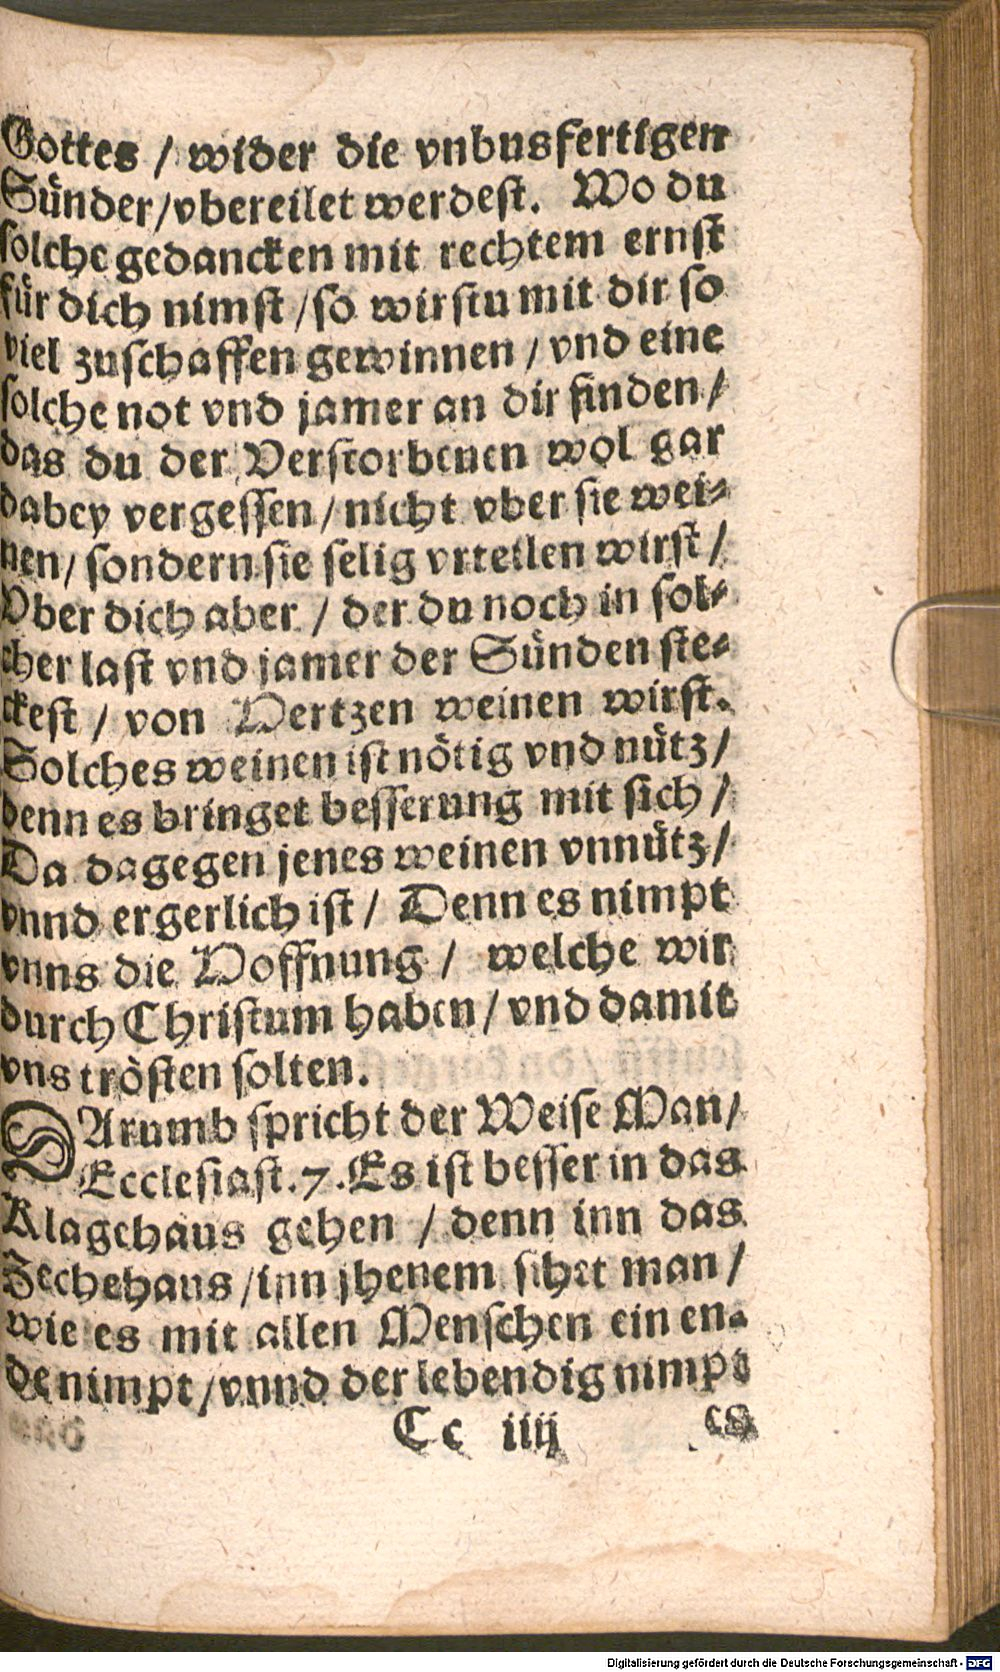 Gottes / wider die vnbusfertigen
Sünder/vbereilet werdest. Wo du
solche gedancken mit rechtem ernst
für dich nimst /so wirstu mit dir so
viel zuschaffen gewinnen / vnd eine
solche not vnd jamer an dir finden/
das du der Verstorbenen wol gar
dabey vergessen/ nicht vber sie wei-
nen/ sondern sie selig vrteilen wirst/
Vber dich aber / der du noch in sol-
cher last vnd jamer der Sünden ste-
ckest / von Hertzen weinen wirst.
Solches weinen ist nötig vnd nütz/
denn es bringet besserung mit sich /
Da dagegen jenes weinen vnnütz/
vnnd ergerlich ist / Denn es nimpt
vnns die Hoffnung / welche wir
durch Christum haben/ vnd damit
vns trösten solten.
DArumb spricht der Weise Man/
Ecclesiast. 7. Es ist besser in das
Klagehaus gehen / denn inn das
Zechehaus /inn jhenem sihet man/
wie es mit allen Menschen ein en-
de nimpt /vnnd der lebendig nimpt
Cc iiij es
Digitalisierung gefördert durch die Deutsche Forschungsgemeinschaft - DFG